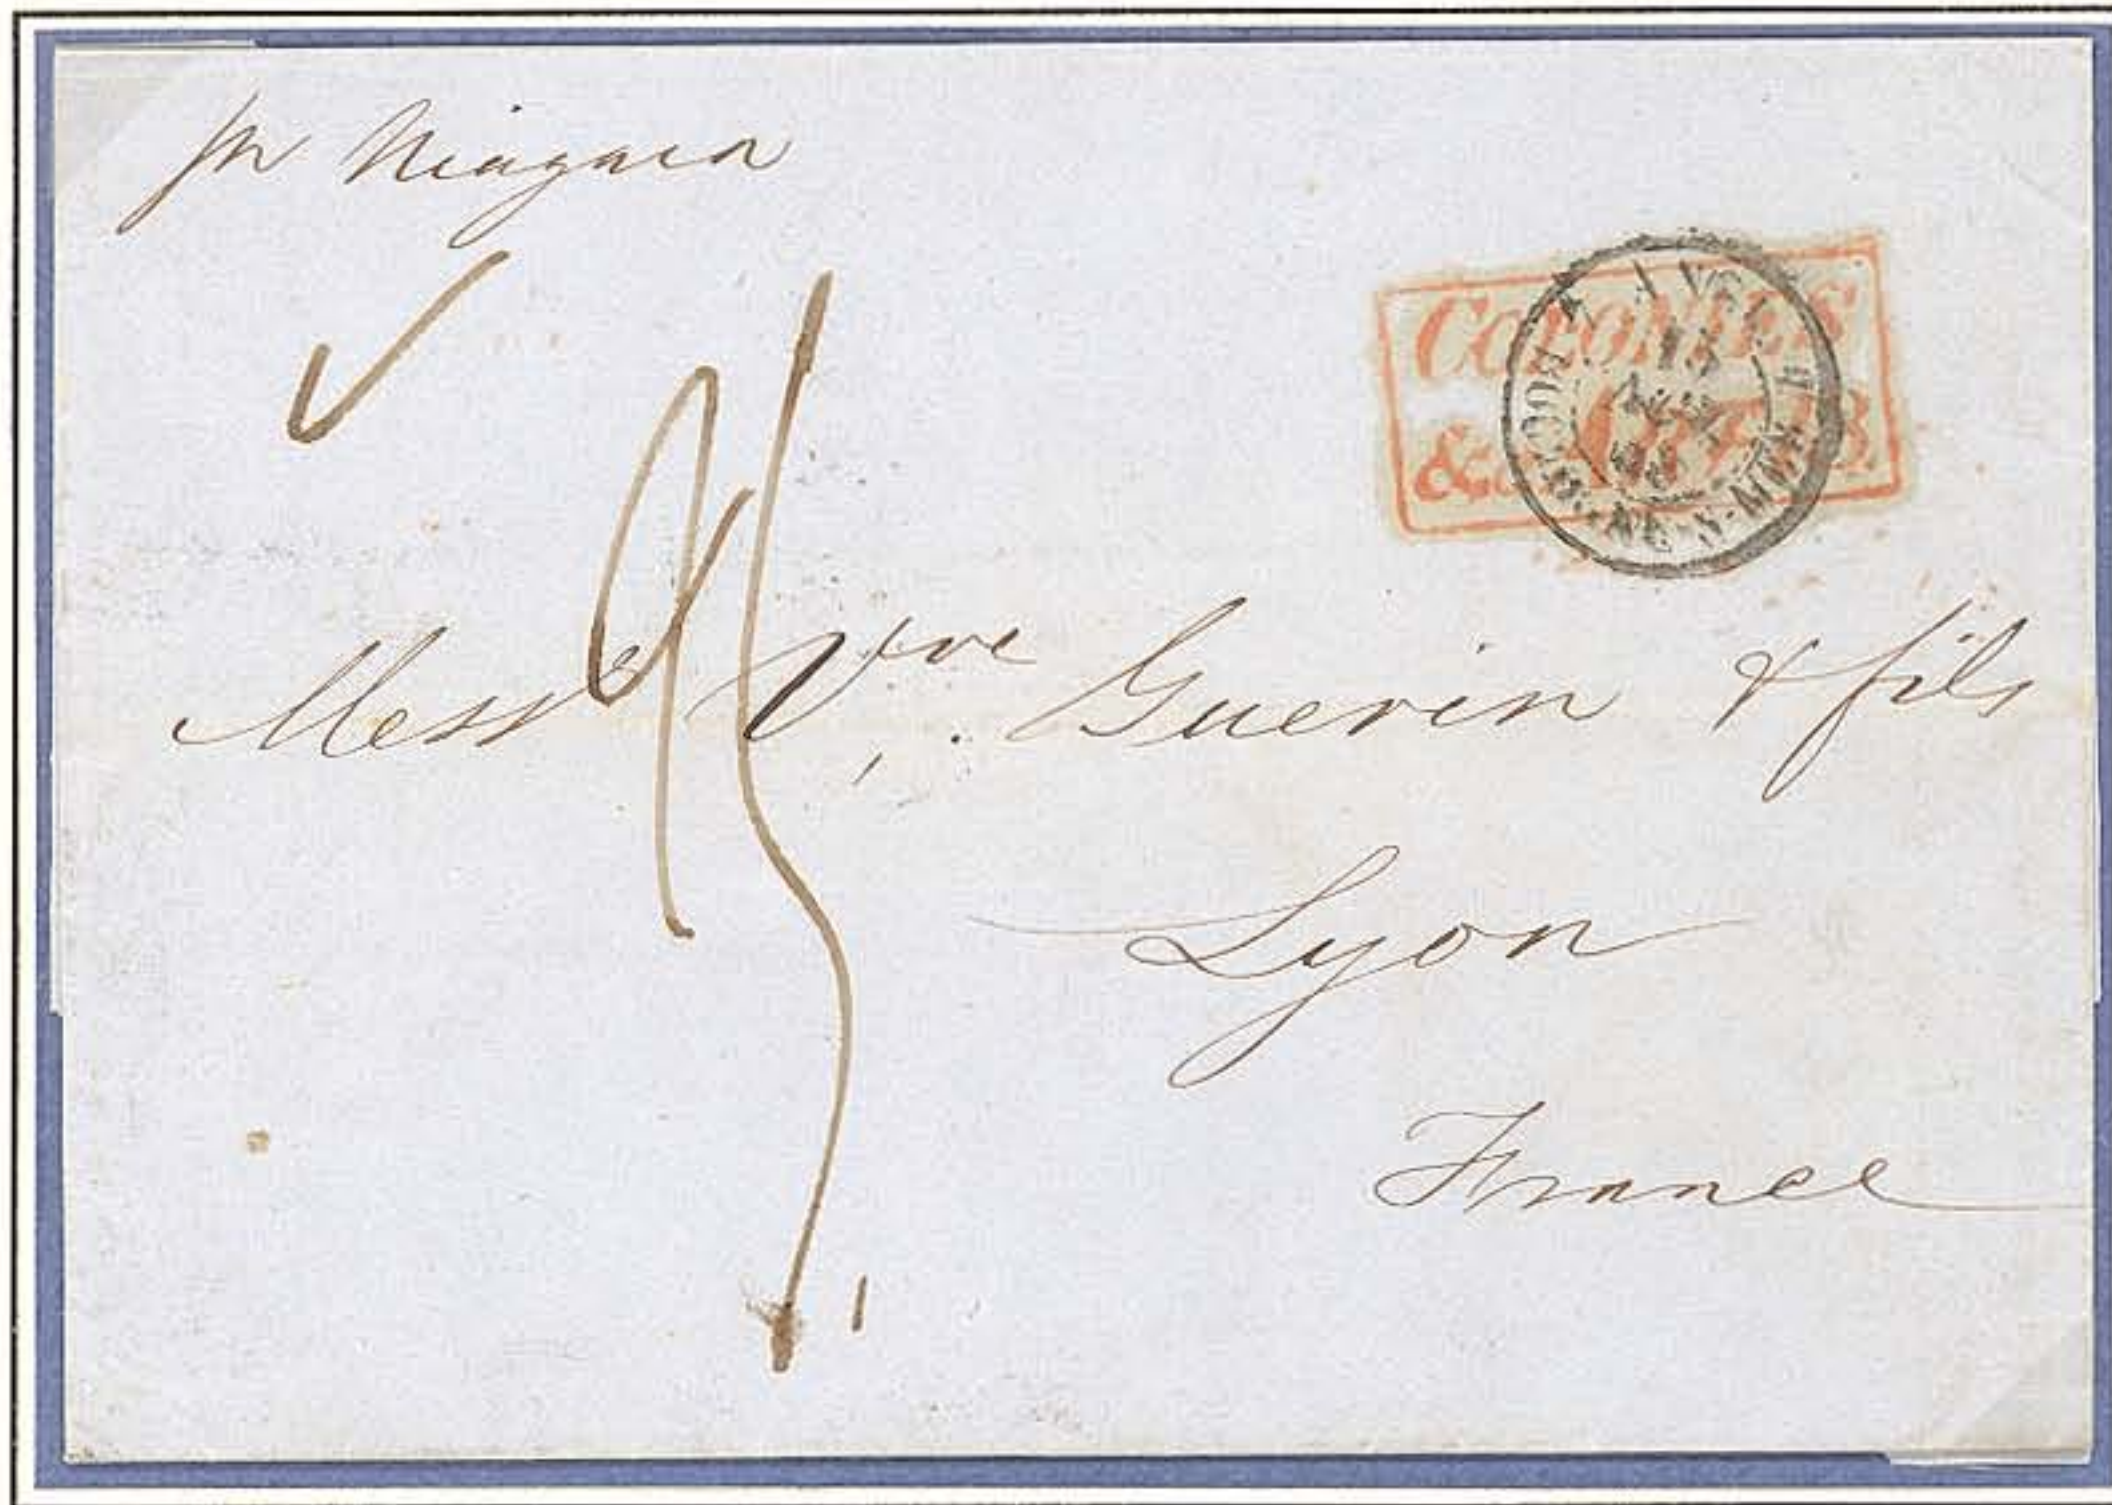 pr Niagara
Colonies
&c. Art. 13.
Mess Vve Guerin & fils
Lyon
France